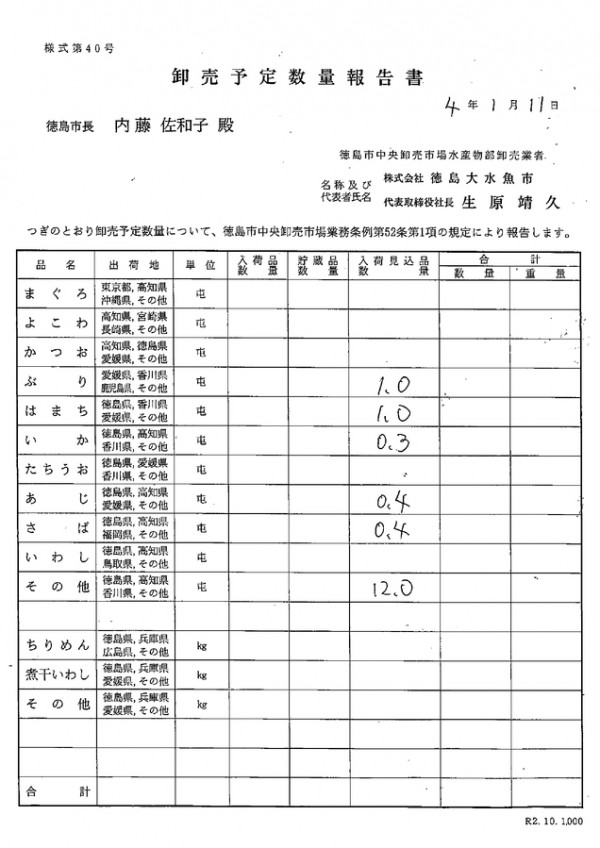 様式第40号
卸売予定数量報告書
4年1月11日
徳島市長 内藤 佐和子 殿
徳島市中央卸売市場水産物部卸売業者
名称及び 株式会社 徳島大水魚市
代表者氏名 代表取締役社長 生原靖久
つぎのとおり卸売予定数量について、徳島市中央卸売市場業務条例第52条第1項の規定により報告します。
品名 出荷地 単位 入荷品数量 貯蔵品数量 入荷見込品数量 合計
数量 重量
まぐろ 東京都, 高知県 沖縄県, その他 屯
よこわ 高知県, 宮崎県 長崎県, その他 屯
かつお 高知県, 徳島県 愛媛県, その他 屯
ぶり 愛媛県, 香川県 鹿児島県, その他 屯 1.0
はまち 徳島県, 香川県 愛媛県, その他 屯 1.0
いか 徳島県, 高知県 香川県, その他 屯 0.3
たちうお 徳島県, 愛媛県 香川県, その他 屯
あじ 徳島県, 高知県 愛媛県, その他 屯 0.4
さば 徳島県, 高知県 福岡県, その他 屯 0.4
いわし 徳島県, 高知県 鳥取県, その他 屯
その他 徳島県, 高知県 香川県, その他 屯 12.0
ちりめん 徳島県, 兵庫県 広島県, その他 kg
煮干いわし 徳島県, 兵庫県 愛媛県, その他 kg
その他 徳島県, 兵庫県 愛媛県, その他 kg
合計
R2.10.1,000